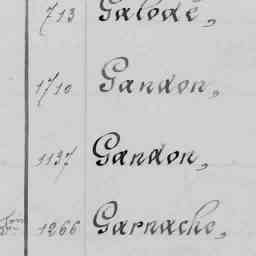 713 Galode,
1710 Gandon,
1137 Gandon,
1266 Garnache,